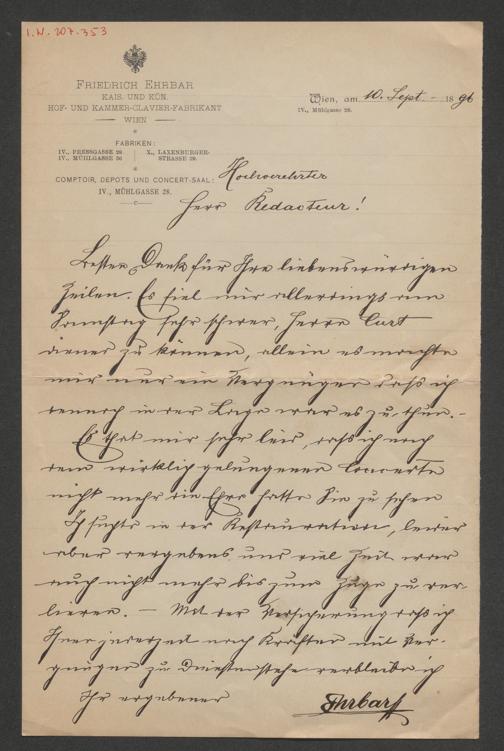 I.N. 207.353
FRIEDRICH EHRBAR
KAIS. UND KÖN.
HOF- UND KAMMER-CLAVIER-FABRIKANT
WIEN
FABRIKEN:
IV., PRESSGASSE 28. X., LAXENBURGER-
IV., MÜHLGASSE 30 STRASSE 29.
COMPTOIR, DEPOTS UND CONCERT-SAAL:
IV., MÜHLGASSE 28.
Wien, am 10. Sept. 1896
IV., Mühlgasse 28.
Hochverehrter
Herr Redacteur!
Besten Dank für Ihre liebenswürdigen
Zeilen. Es fiel mir allerdings am
Samstag sehr schwer, Herrn Curt
dienen zu können, allein es machte
mir nur ein Vergnügen dass ich
dennoch in der Lage war es zu thun. –
Es that mir sehr leid, dass ich nach
dem wirklich gelungenen Concerte
nicht mehr die Ehre hatte Sie zu sehen
Ich suchte in der Restauration, leider
aber vergebens, und viel Zeit war
auch nicht mehr bis zum Zuge zu ver-
lieren. – Mit der Versicherung dass ich
Ihnen jederzeit nach Kräften mit Ver-
gnügen zu Diensten stehe verbleibe ich
Ihr ergebener Ehrbar